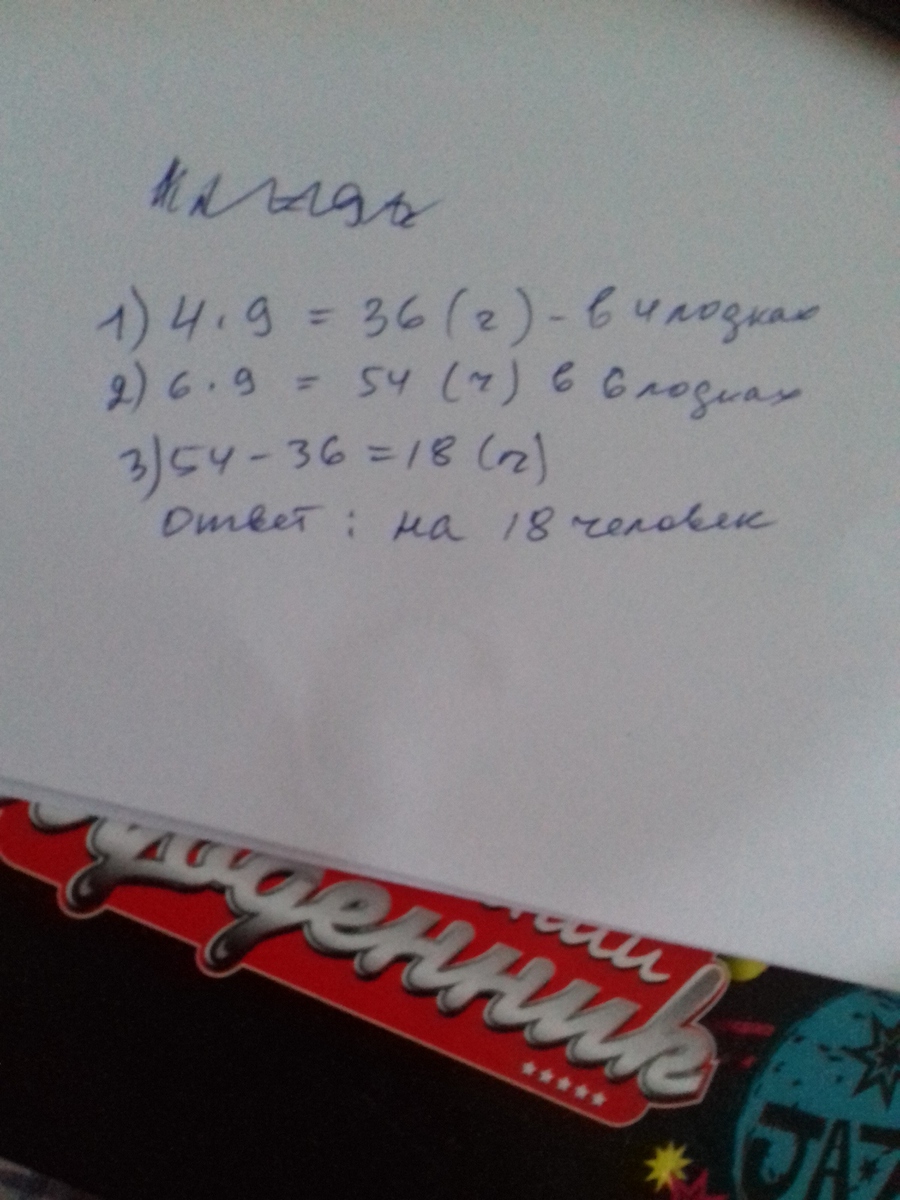 1) 4 · 9 = 36 (г) - в 4 лодках
2) 6 · 9 = 54 (ч) в 6 лодках
3) 54 - 36 = 18 (ч)
Ответ : на 18 человек
JAZ